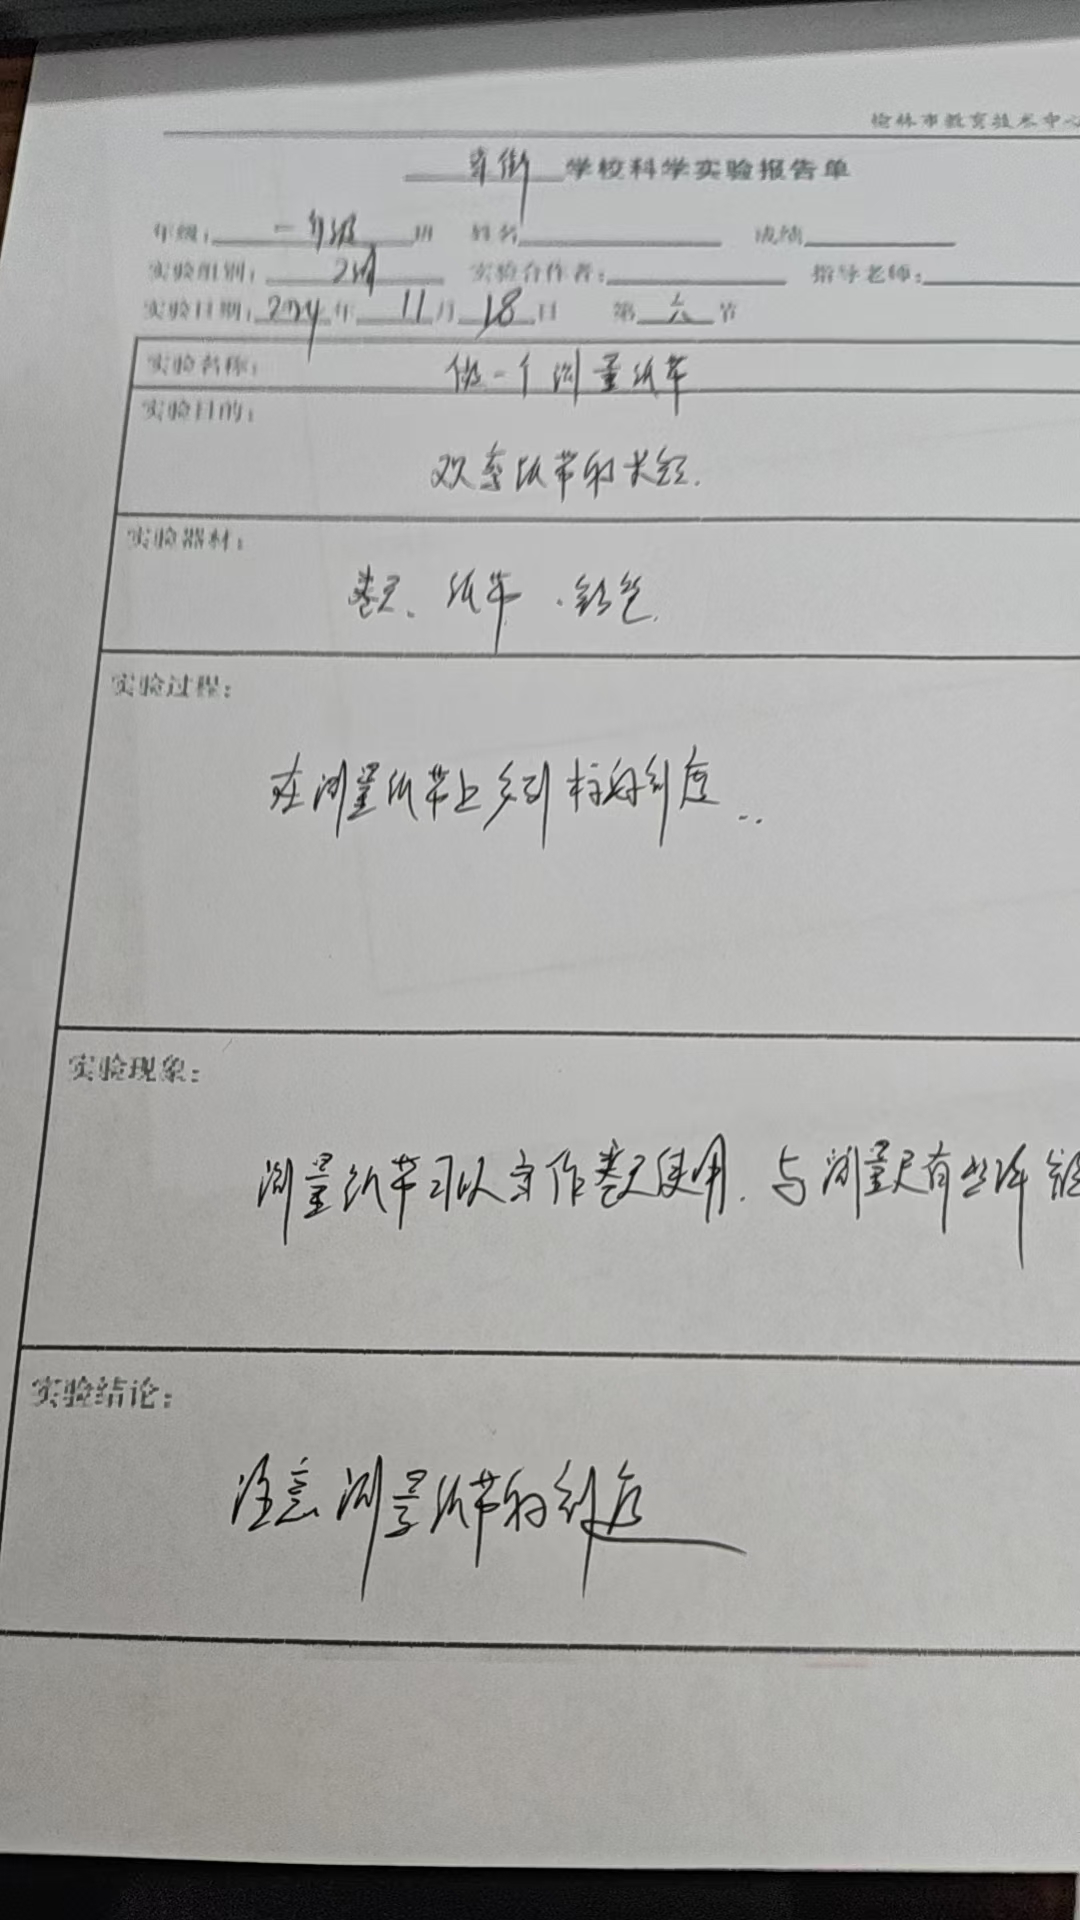 榆林市教育技术中心
学校科学实验报告单
年级：一年级班 姓名 成绩
实验组别：2组 实验合作者： 指导老师：
实验日期：2024年11月18日 第六节
实验名称： 做一个测量纸带
实验目的：
观察纸带的长短.
实验器材：
卷尺、纸带、铅笔.
实验过程：
在测量纸带上 标好刻度..
实验现象：
测量纸带可以当作卷尺使用.与测量尺有些许
实验结论：
注意测量纸带的刻度